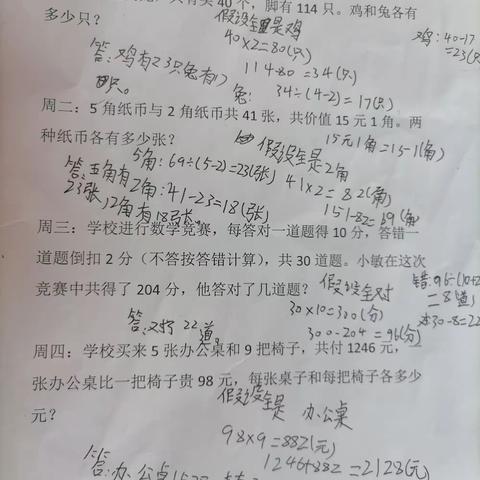 共有头40个，脚有114只。鸡和兔各有
多少只？
假设全是鸡
40×2=80(只)
鸡：40-17
=23(只
答：鸡有23只兔有17
只。
114-80=34(只)
兔：34÷(4-2)=17(只)
周二：5角纸币与2角纸币共41张，共价值15元1角。两
种纸币各有多少张？
15元1角=151(角)
假设全是
2角
5角：69÷(5-2)=23(张)
41×2=82(角)
答：五角有
23张，2角有18张。
2角：41-23=18(张)
151-82=69(角
周三：学校进行数学竞赛，每答对一道题得10分，答错一
道题倒扣2分（不答按答错计算），共30道题。小敏在这次
竞赛中共得了204分，他答对了几道题？
假设全对
错：96÷(10+2
=8道)
30×10=300(分)
对30-8=22
答：对了22道。
300-204=96(分)
周四：学校买来5张办公桌和9把椅子，共付1246元，一
张办公桌比一把椅子贵98元，每张桌子和每把椅子各多少
元？
假设全是办公桌
98×9=882(元)
1246+882=2128(元)
答：办公桌152